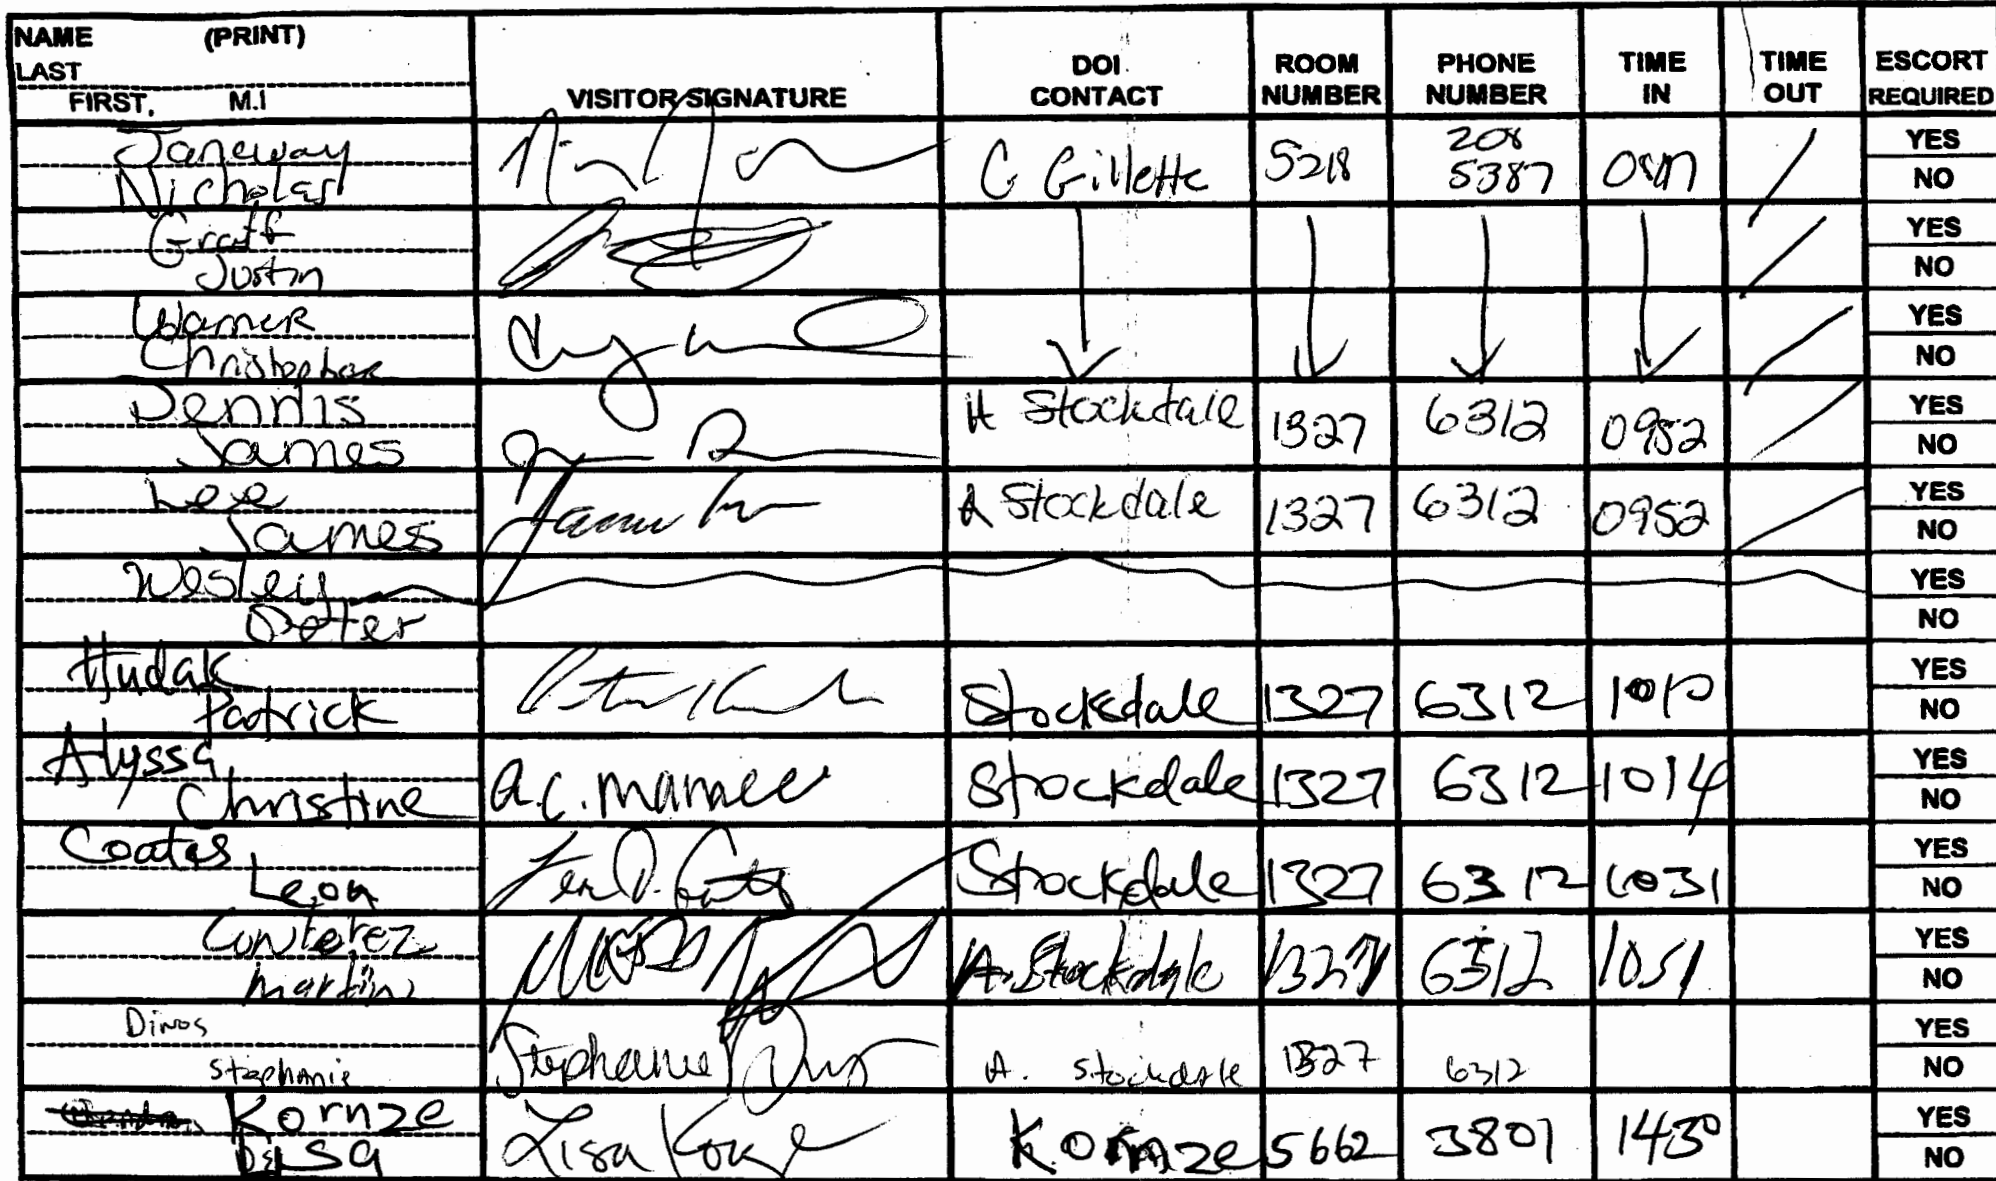 NAME (PRINT)
LAST
FIRST, M.I
VISITOR SIGNATURE
DOI CONTACT
ROOM NUMBER
PHONE NUMBER
TIME IN
TIME OUT
ESCORT REQUIRED
Janeway
Nicholas
C Gillette 5218 208 5387
YES
NO
Graff
Justin
YES
NO
Warner
Christopher
YES
NO
Dennis
James
H Stockdale 1327 6312 0952
YES
NO
Lee
James
A Stockdale 1327 6312 0952
YES
NO
Wesley
YES
NO
Hudak
Patrick
Stockdale 1327 6312 1010
YES
NO
Alyssa
Christine
A.C. Stockdale 1327 6312 1014
YES
NO
Coates
Leon
Leon D. Coates Stockdale 1327 6312 1031
YES
NO
Martin
A. Stockdale 1327 6312 1051
YES
NO
Dinos
Stephanie
Stephanie Dinos A. Stockdale 1327 6312
YES
NO
Kornze
Lisa
Lisa Kornze Kornze 5662 3801 1430
YES
NO